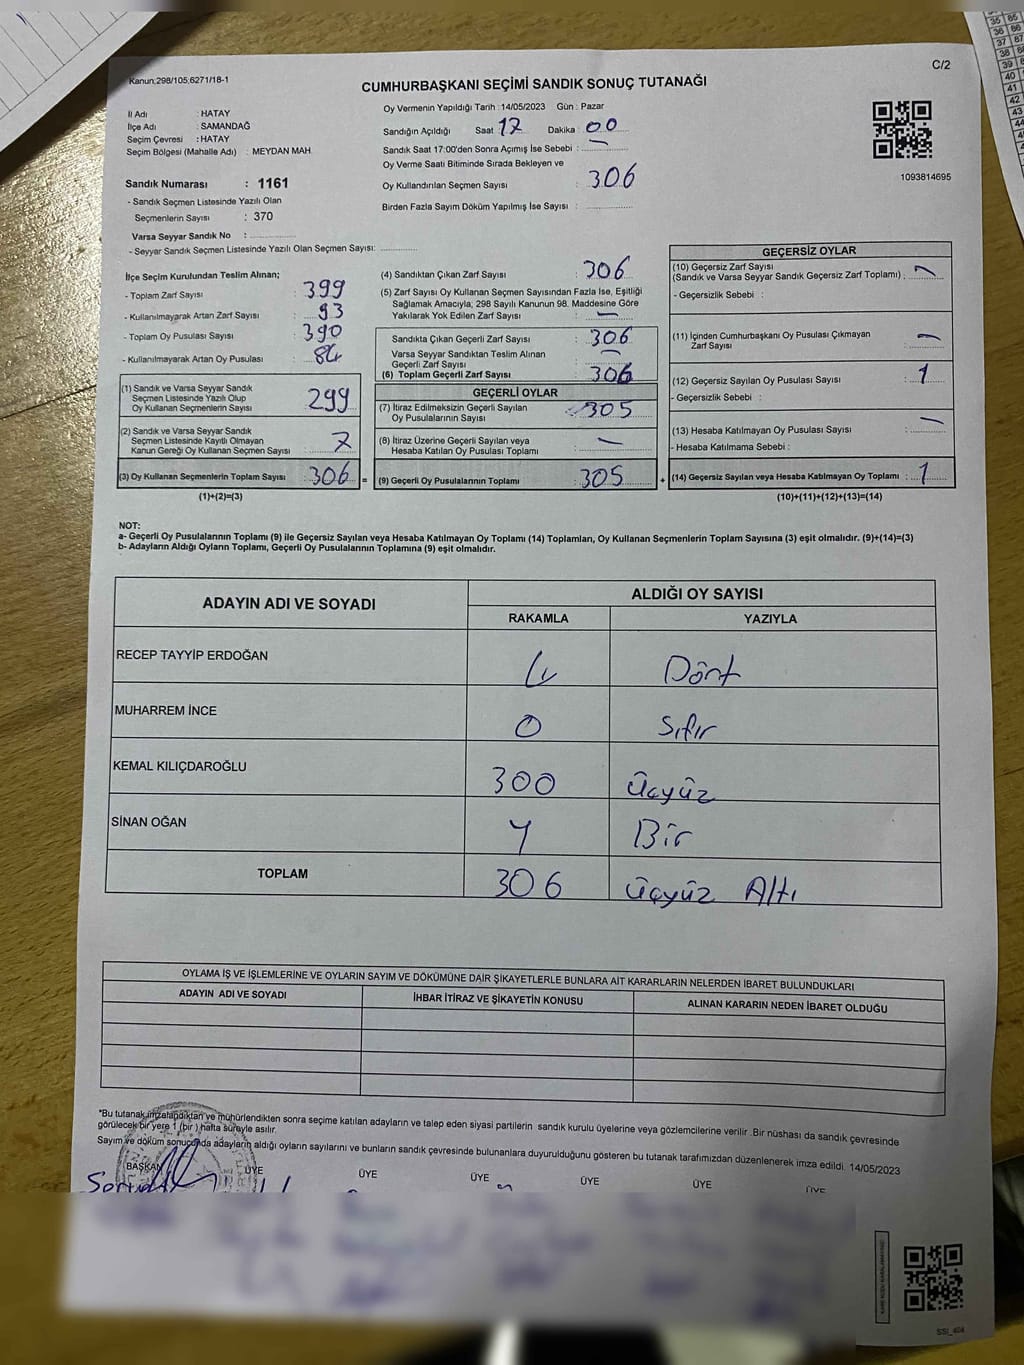 Kanun;298/105,6271/18-1
C/2
CUMHURBAŞKANI SEÇİMİ SANDIK SONUÇ TUTANAĞI
İl Adı : HATAY
İlçe Adı : SAMANDAĞ
Seçim Çevresi : HATAY
Seçim Bölgesi (Mahalle Adı) : MEYDAN MAH.
Sandık Numarası : 1161
- Sandık Seçmen Listesinde Yazılı Olan
Seçmenlerin Sayısı : 370
Varsa Seyyar Sandık No :
- Seyyar Sandık Seçmen Listesinde Yazılı Olan Seçmen Sayısı:
Oy Vermenin Yapıldığı Tarih : 14/05/2023 Gün : Pazar
Sandığın Açıldığı Saat : 17 Dakika : 00
Sandık Saat 17:00'den Sonra Açımış İse Sebebi : —
Oy Verme Saati Bitiminde Sırada Bekleyen ve
Oy Kullandırılan Seçmen Sayısı : 306
Birden Fazla Sayım Döküm Yapılmış İse Sayısı :
1093814695
İlçe Seçim Kurulundan Teslim Alınan;
- Toplam Zarf Sayısı : 399
- Kullanılmayarak Artan Zarf Sayısı : 93
- Toplam Oy Pusulası Sayısı : 390
- Kullanılmayarak Artan Oy Pusulası : 84
(1) Sandık ve Varsa Seyyar Sandık
Seçmen Listesinde Yazılı Olup
Oy Kullanan Seçmenlerin Sayısı : 299
(2) Sandık ve Varsa Seyyar Sandık
Seçmen Listesinde Kayıtlı Olmayan
Kanun Gereği Oy Kullanan Seçmen Sayısı : 7
(3) Oy Kullanan Seçmenlerin Toplam Sayısı : 306 =
(1)+(2)=(3)
(4) Sandıktan Çıkan Zarf Sayısı : 306
(5) Zarf Sayısı Oy Kullanan Seçmen Sayısından Fazla İse, Eşitliği
Sağlamak Amacıyla; 298 Sayılı Kanunun 98. Maddesine Göre
Yakılarak Yok Edilen Zarf Sayısı : —
Sandıkta Çıkan Geçerli Zarf Sayısı : 306
Varsa Seyyar Sandıktan Teslim Alınan
Geçerli Zarf Sayısı : —
(6) Toplam Geçerli Zarf Sayısı : 306
GEÇERLİ OYLAR
(7) İtiraz Edilmeksizin Geçerli Sayılan
Oy Pusulalarının Sayısı : 305
(8) İtiraz Üzerine Geçerli Sayılan veya
Hesaba Katılan Oy Pusulası Toplamı : —
(9) Geçerli Oy Pusulalarının Toplamı : 305 +
GEÇERSİZ OYLAR
(10) Geçersiz Zarf Sayısı
(Sandık ve Varsa Seyyar Sandık Geçersiz Zarf Toplamı) : —
- Geçersizlik Sebebi :
(11) İçinden Cumhurbaşkanı Oy Pusulası Çıkmayan
Zarf Sayısı : —
(12) Geçersiz Sayılan Oy Pusulası Sayısı : 1
- Geçersizlik Sebebi :
(13) Hesaba Katılmayan Oy Pusulası Sayısı : —
- Hesaba Katılmama Sebebi :
(14) Geçersiz Sayılan veya Hesaba Katılmayan Oy Toplamı : 1
(10)+(11)+(12)+(13)=(14)
NOT:
a- Geçerli Oy Pusulalarının Toplamı (9) ile Geçersiz Sayılan veya Hesaba Katılmayan Oy Toplamı (14) Toplamları, Oy Kullanan Seçmenlerin Toplam Sayısına (3) eşit olmalıdır. (9)+(14)=(3)
b- Adayların Aldığı Oyların Toplamı, Geçerli Oy Pusulalarının Toplamına (9) eşit olmalıdır.
ADAYIN ADI VE SOYADI
ALDIĞI OY SAYISI
RAKAMLA YAZIYLA
RECEP TAYYİP ERDOĞAN 4 Dört
MUHARREM İNCE 0 Sıfır
KEMAL KILIÇDAROĞLU 300 Üçyüz
SİNAN OĞAN 1 Bir
TOPLAM 306 Üçyüz Altı
OYLAMA İŞ VE İŞLEMLERİNE VE OYLARIN SAYIM VE DÖKÜMÜNE DAİR ŞİKAYETLERLE BUNLARA AİT KARARLARIN NELERDEN İBARET BULUNDUKLARI
ADAYIN ADI VE SOYADI İHBAR İTİRAZ VE ŞİKAYETİN KONUSU ALINAN KARARIN NEDEN İBARET OLDUĞU
*Bu tutanak imzalandıktan ve mühürlendikten sonra seçime katılan adayların ve talep eden siyasi partilerin sandık kurulu üyelerine veya gözlemcilerine verilir .Bir nüshası da sandık çevresinde
görülecek bir yere 1 (bir ) hafta süreyle asılır.
Sayım ve döküm sonucunda adayların aldığı oyların sayılarını ve bunların sandık çevresinde bulunanlara duyurulduğunu gösteren bu tutanak tarafımızdan düzenlenerek imza edildi. 14/05/2023
BAŞKAN ÜYE ÜYE ÜYE ÜYE ÜYE ÜYE
SSI_404